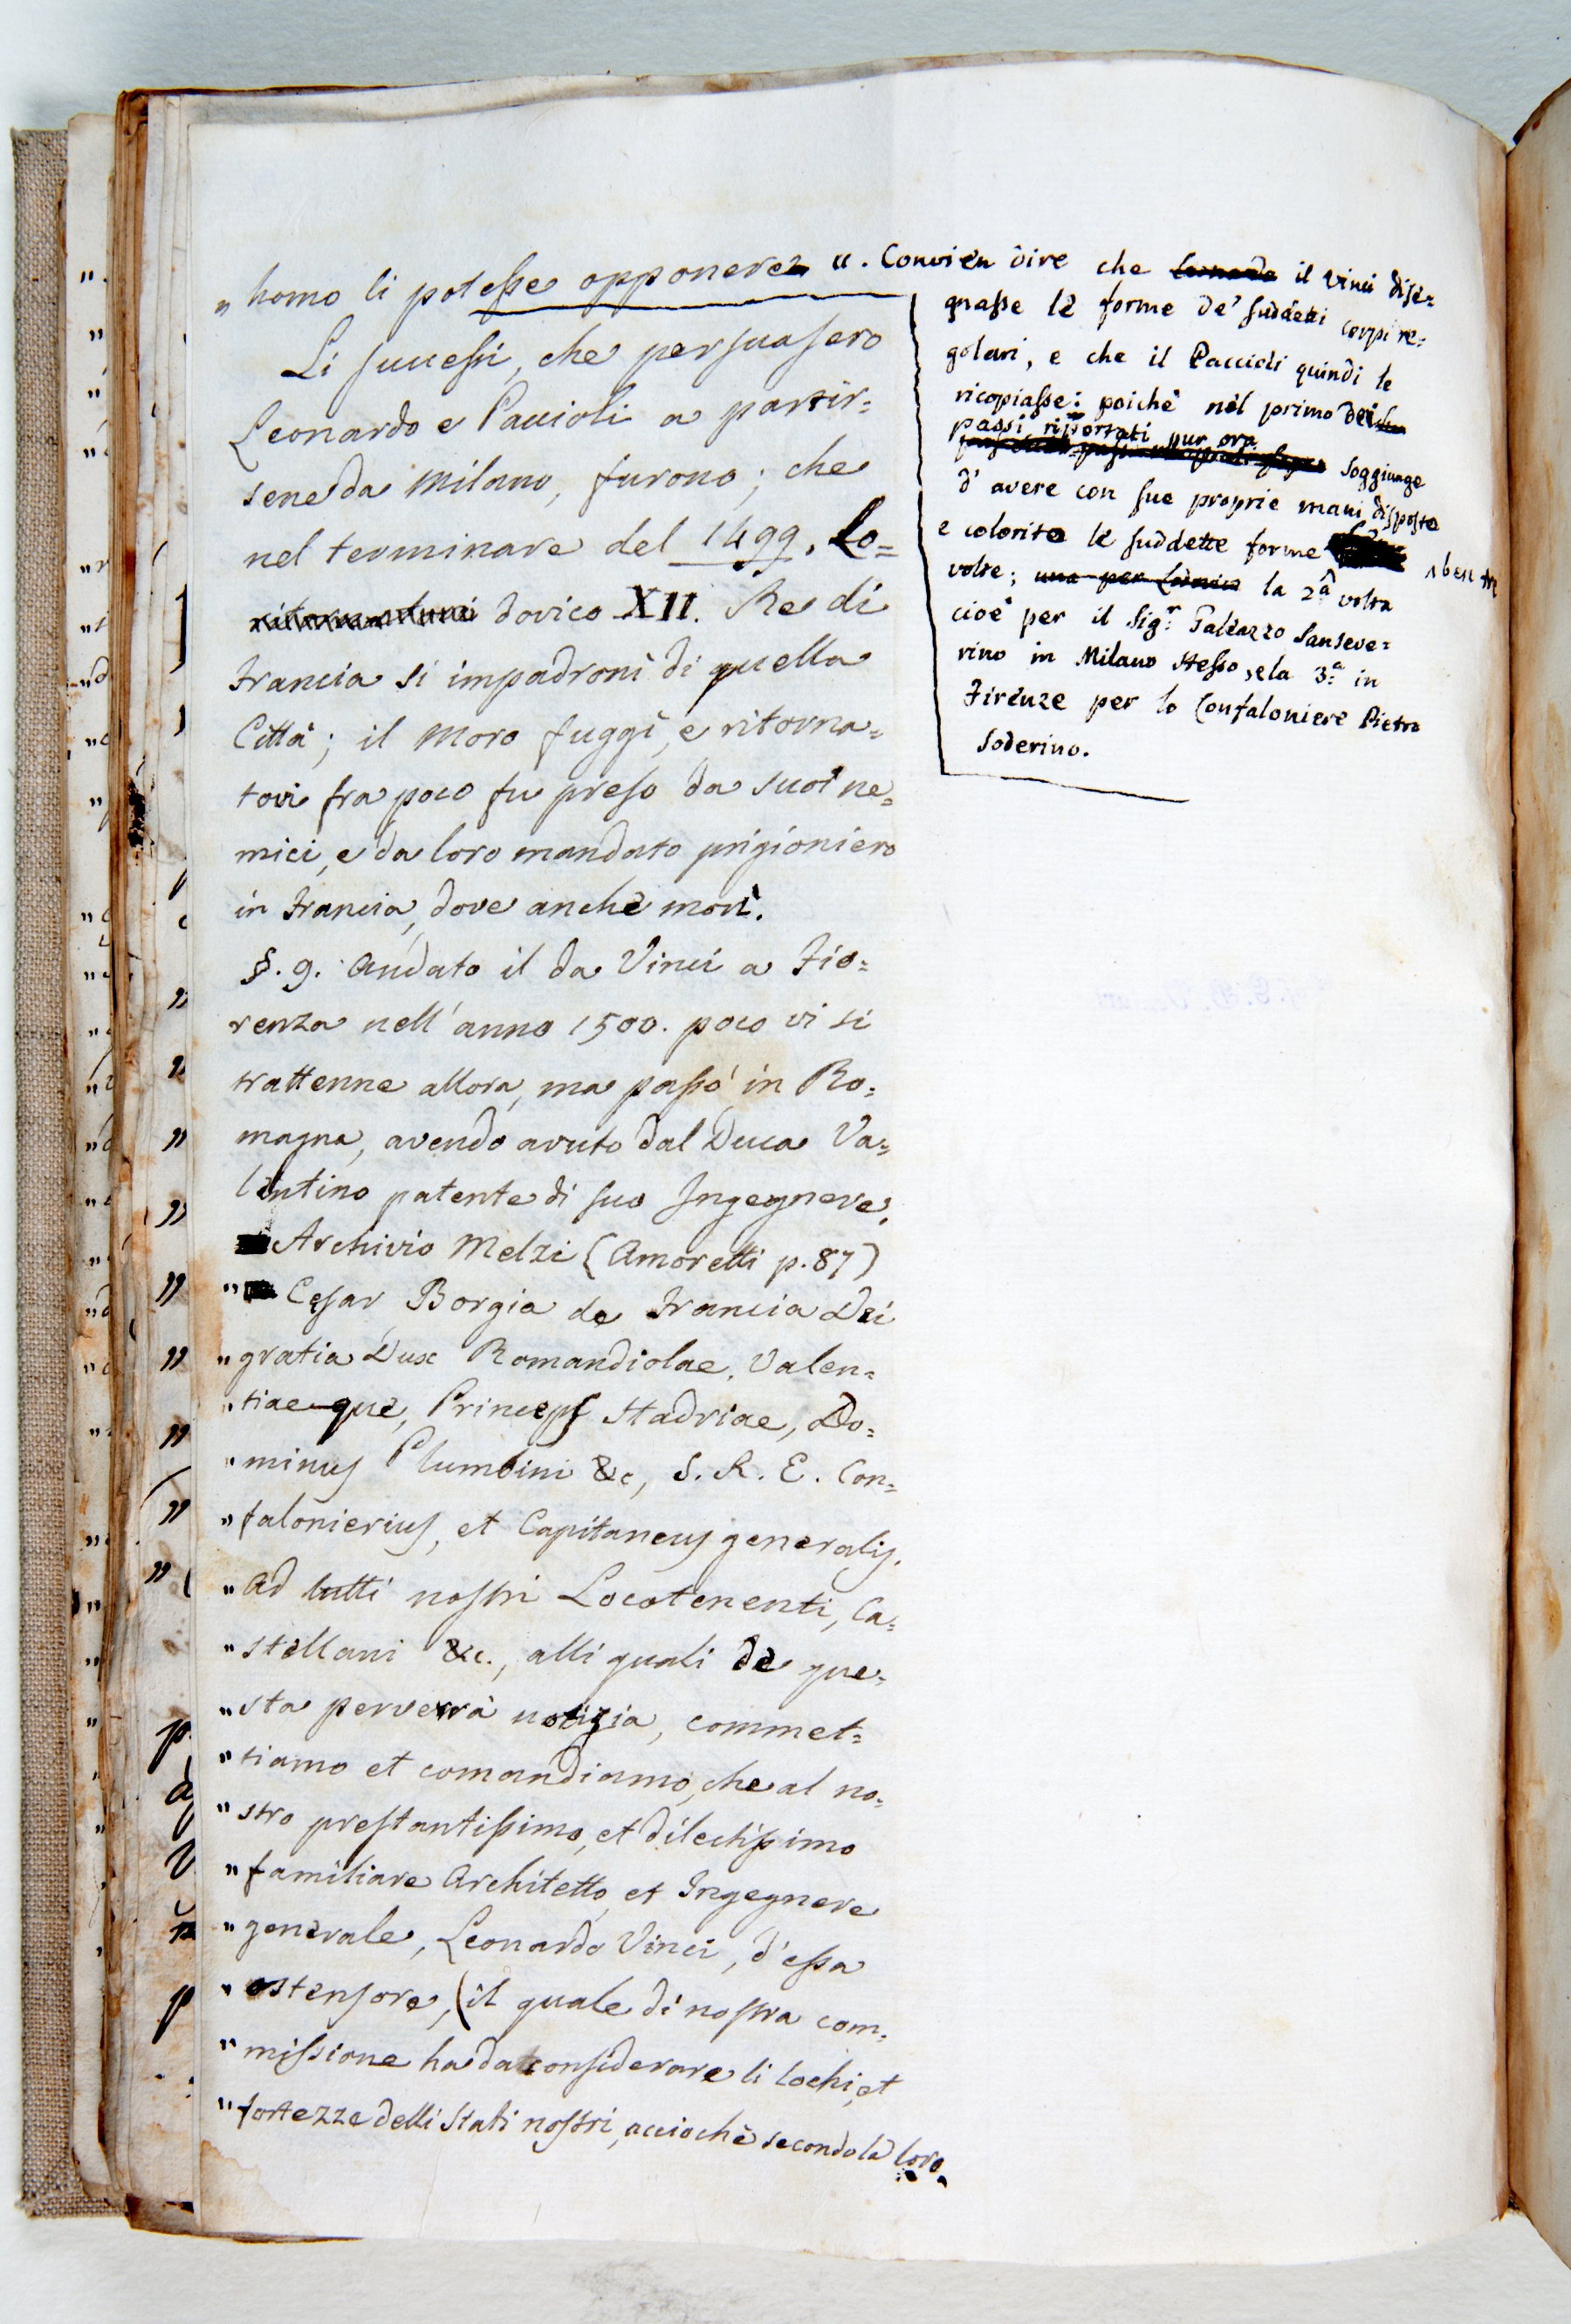 „ homo li potesse opponere „. Convien dire che Leonardo il Vinci dise=
gnasse le forme de' suddetti corpi re=
golari, e che il Paccioli quindi le
ricopiasse: poichè nel primo dei
passi riportati pur ora
soggiunge
d'avere con sue proprie mani disposte
e colorite le suddette forme ben tre
volte; la 2.ª volta
cioè per il Sig.r Galeazzo Sanseve=
rino in Milano stesso, e la 3.ª in
Firenze per lo Confaloniere Pietro
Soderino.
Li successi, che persuasero
Leonardo e Paccioli a partir=
sene da Milano, furono; che
nel terminare del 1499. Lo=
dovico XII. Re di
Francia si impadronì di quella
Città; il Moro fuggì, e ritorna=
tovi fra poco fu preso da suoi ne=
mici, e da loro mandato prigioniero
in Francia, dove anche morì.
§. 9. Andato il da Vinci a Fio=
renza nell'anno 1500. poco vi si
trattenne allora, ma passò in Ro=
magna, avendo avuto dal Duca Va=
lentino patente di suo Ingegnere.
Archivio Melzi (Amoretti p. 87)
„ Cesar Borgia de Francia Dei
„ gratia Dux Romandiolae, Valen=
„ tiaeque, Princeps Hadriae, Do=
„ minus Plumbini &c, S. R. E. Con=
„ falonierius, et Capitaneus generalis.
„ Ad tutti nostri Locotenenti, Ca=
„ stellani &c., alli quali de que=
„ sta perverrà notizia, commet=
„ tiamo et comandiamo, che al no=
„ stro prestantissimo, et dilectissimo
„ familiare Architetto, et Ingegnere
„ generale, Leonardo Vinci, d'essa
„ ostensore, (il quale di nostra com=
„ missione ha da considerare li lochi, et
„ fortezze delli Stati nostri, acciochè secondo la loro